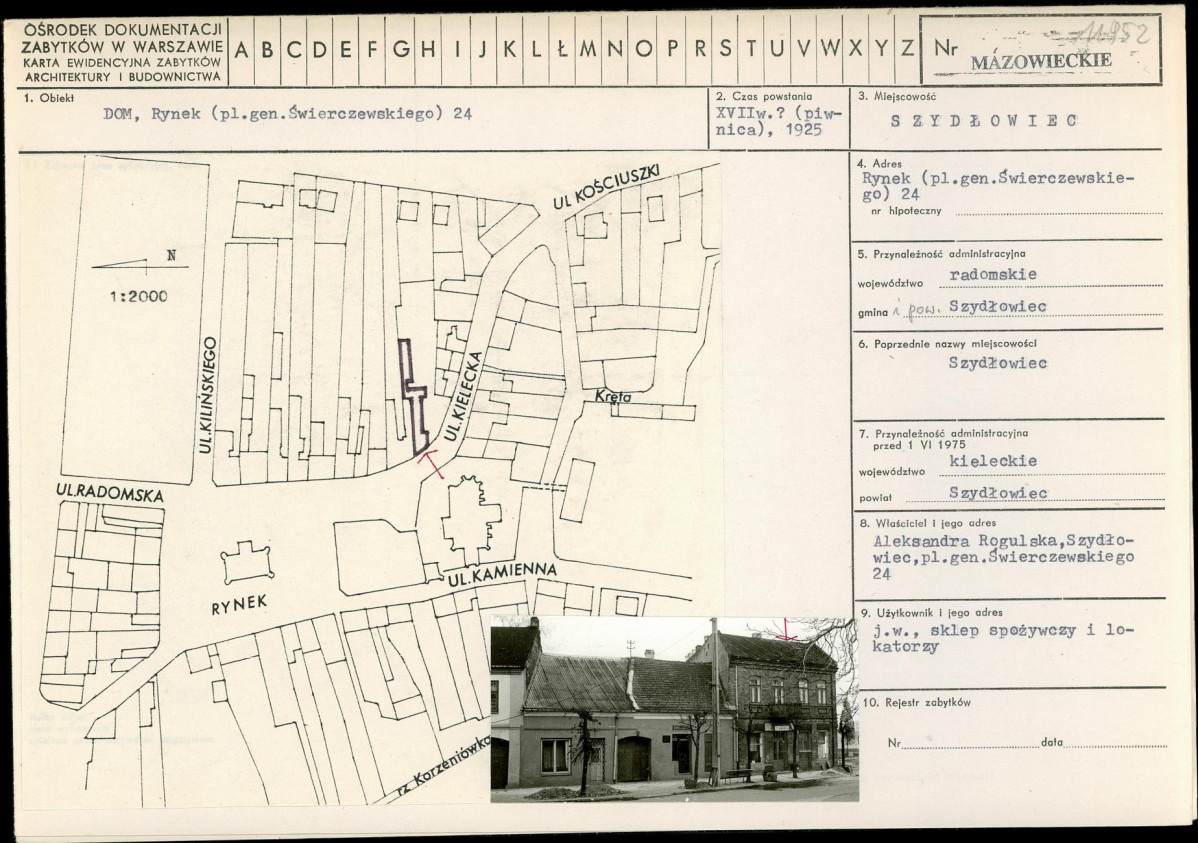 OŚRODEK DOKUMENTACJI
ZABYTKÓW W WARSZAWIE
KARTA EWIDENCYJNA ZABYTKÓW
ARCHITEKTURY I BUDOWNICTWA
A B C D E F G H I J K L Ł M N O P R S T U V W X Y Z
Nr
11952
MAZOWIECKIE
1. Obiekt
DOM, Rynek (pl.gen.Świerczewskiego) 24
2. Czas powstania
XVIIw.? (piw-
nica), 1925
3. Miejscowość
SZYDŁOWIEC
4. Adres
Rynek (pl.gen.Świerczewskie-
go) 24
nr hipoteczny
5. Przynależność administracyjna
województwo radomskie
gmina i pow. Szydłowiec
6. Poprzednie nazwy miejscowości
Szydłowiec
7. Przynależność administracyjna
przed 1 VI 1975
województwo kieleckie
powiat Szydłowiec
8. Właściciel i jego adres
Aleksandra Rogulska,Szydło-
wiec,pl.gen.Świerczewskiego
24
9. Użytkownik i jego adres
j.w., sklep spożywczy i lo-
katorzy
10. Rejestr zabytków
Nr data
N
1:2000
UL KOŚCIUSZKI
UL.KILIŃSKIEGO
UL.KIELECKA
Kręta
UL.RADOMSKA
RYNEK
UL.KAMIENNA
rz Korzeniówka